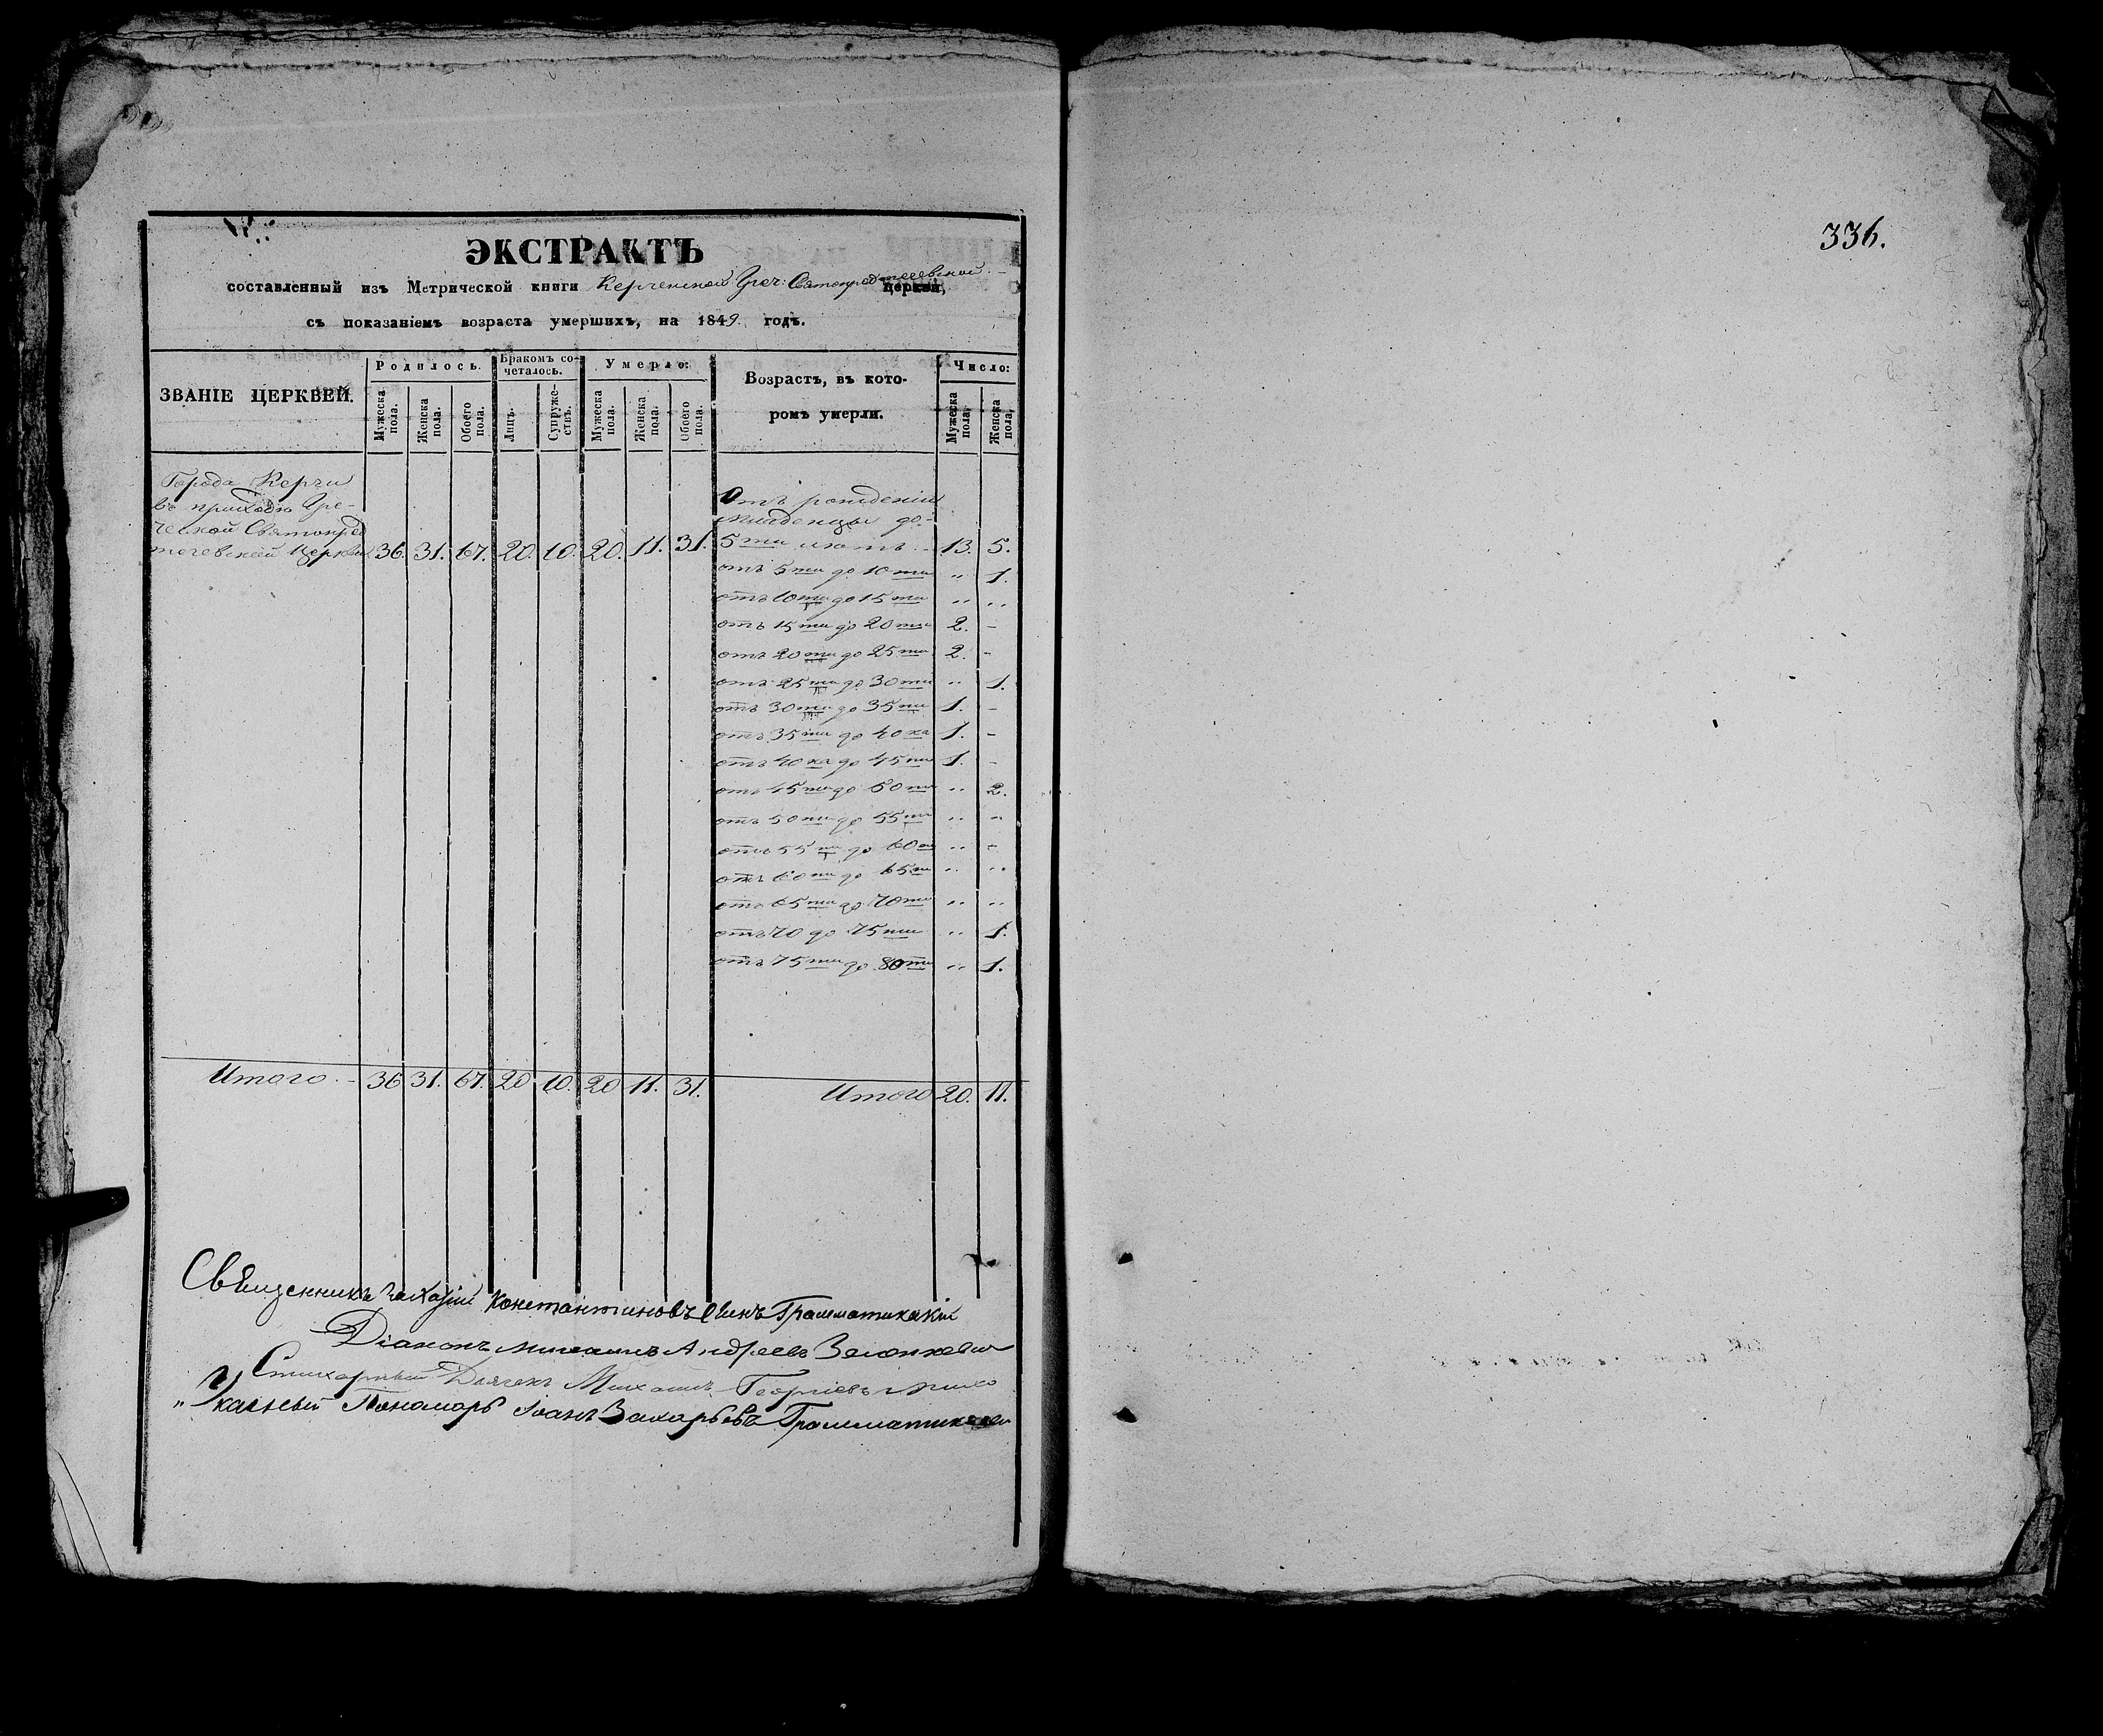 ЭКСТРАКТЪ
составленный изъ Метрической книги Керченской Греч: Святопредтечевской церкви,
съ показаніемъ возраста умершихъ, на 1849. годъ.
ЗВАНІЕ ЦЕРКВЕЙ.
Родилось.
Бракомъ со-
четалось.
Умерло:
Возрастъ, въ кото-
ромъ умерли.
Число:
Мужеска пола.
Женска пола.
Обоего пола.
Лицъ.
Супруже-
ствъ.
Мужеска пола.
Женска пола.
Обоего пола.
Мужеска пола,
Женска пола,
Города Керчи
въ приходѣ Гре-
ческой Святопред
течевской Церкви 36. 31. 67. 20. 10. 20. 11. 31.
Отъ рожденія
младенцы до-
5ти лѣтъ - 13. 5.
отъ 5ти до 10ти " 1.
отъ 10ти до 15ти " "
отъ 15ти до 20ти 2. -
отъ 20ти до 25ти 2. -
отъ 25ти до 30ти " 1.
отъ 30ти до 35ти 1. -
отъ 35ти до 40ка 1. -
отъ 40ка до 45ти 1. -
отъ 45ти до 50ти " 2.
отъ 50ти до 55ти " "
отъ 55ти до 60ти " -
отъ 60ти до 65ти " "
отъ 65ти до 70ти " "
отъ 70 до 75ти " 1.
отъ 75ти до 80ти " 1.
Итого - 36 31. 67. 20 10. 20 11. 31.
Итого 20. 11.
Священникъ Константиновъ Сынъ Грамматикакій
Діаконъ Михаилъ Андреевъ
Стихарный Дьячекъ Михаилъ Георгіевъ
" Указный Пономарь Іоанъ Захарьевъ Грамматикакій
336.